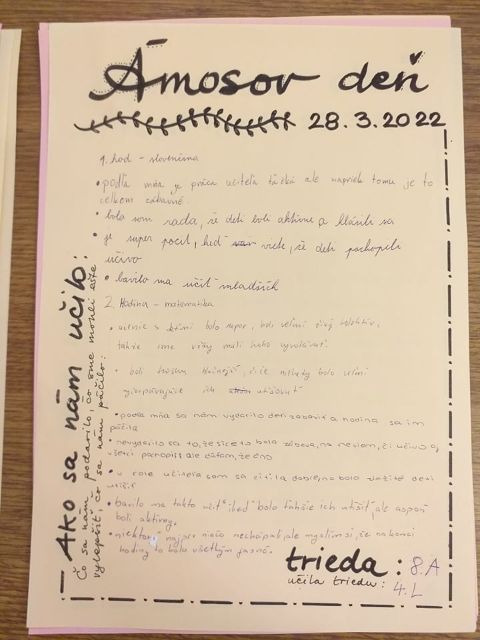 Ámosov deň
28.3.2022
Ako sa nám učilo:
Čo sa nám podarilo, čo sme mohli ešte
vylepšiť, čo sa nám páčilo:
1. hod - slovenčina
• podľa mňa je práca učiteľa ťažká ale napriek tomu je to
celkom zábavné
• bola som rada, že deti boli aktívne a hlásili sa
• je super pocit, keď viete, že deti pochopili
učivo
• bavilo ma učiť mladších
2. Hodina - matematika
• učenie s nimi bolo super, boli veľmi živý kolektív,
takže sme vždy mali koho vyvolávať
• boli trochu hlučnejší, čiže niekedy bolo veľmi
vyčerpávajúce ich utišovať
• podľa mňa sa nám vydarilo deti zabaviť a hodina sa im
páčila
• nevydarilo sa to, že síce to bola zábava, no neviem, či učivo aj
všetci pochopili ale dúfam, že áno
• v role učiteľa som sa cítila dobre, no bolo ťažké deti
utíšiť
• bavilo ma takto učiť, keď bolo ťažšie ich utíšiť, ale aspoň
boli aktívny,
• niektorí najprv niečo nechápali, ale myslím si, že na konci
hodiny to bolo všetkým jasné.
trieda: 8.A
učila triedu: 4.L